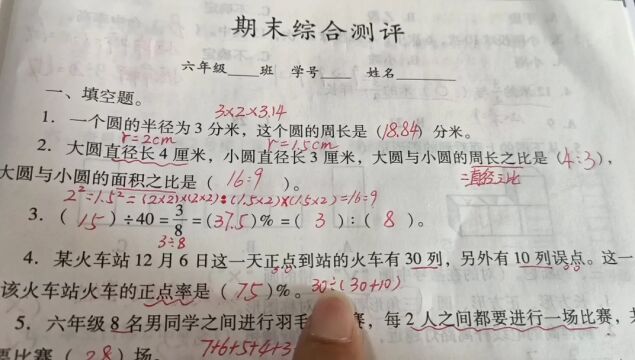 期末综合测评
六年级____班 学号____ 姓名______
一、填空题。
3×2×3.14
1. 一个圆的半径为3分米，这个圆的周长是（18.84）分米。
r=2cm r=1.5cm
2. 大圆直径长4厘米，小圆直径长3厘米，大圆与小圆的周长之比是（4:3），
=直径之比
大圆与小圆的面积之比是（16:9）。
2²:1.5²=(2×2)×(2×2):(1.5×2)×(1.5×2)=16:9
3.（15）÷40=3/8=（37.5）%=（3）:（8）。
3÷8
4. 某火车站12月6日这一天正点到站的火车有30列，另外有10列误点。这一
该火车站火车的正点率是（75）%。30÷(30+10)
5. 六年级8名男同学之间进行羽毛 赛，每2人之间都要进行一场比赛，
要比赛（28）场。 7+6+5+4+3